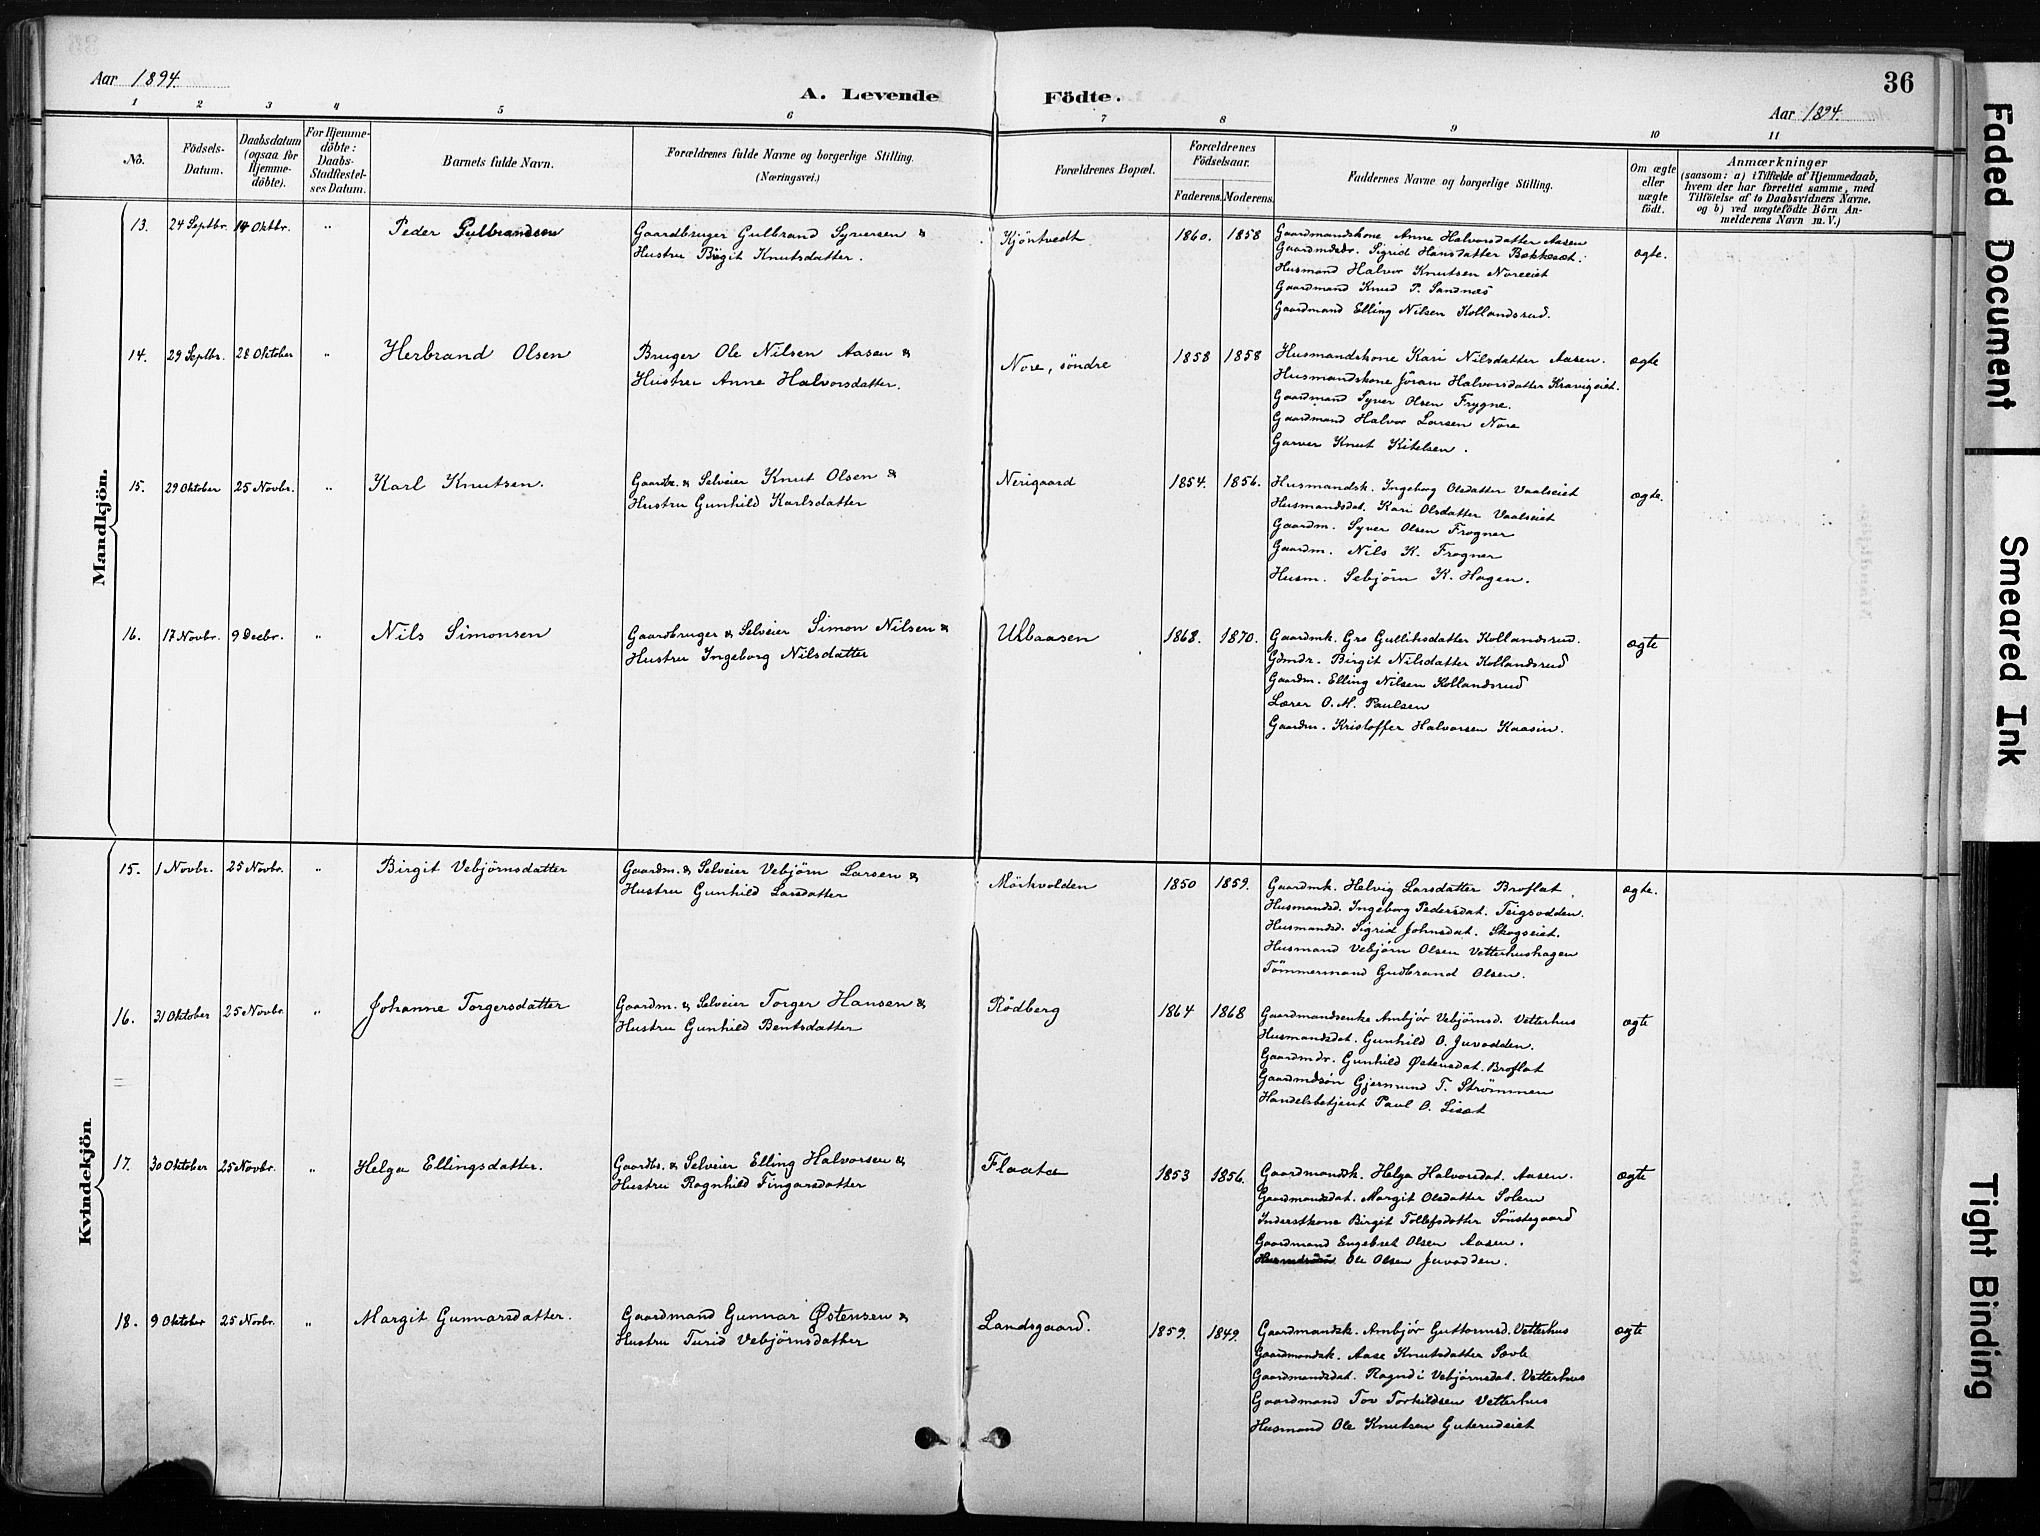 36
Aar 1894.
A. Levende Födte.
Aar 1894.
1 2 3 4 5 6 7 8 9 10 11
No.
Födsels-Datum.
Daabsdatum (ogsaa for Hjemme-döbte).
For Hjemme-döbte: Daabs-Stadfæstel-ses Datum.
Barnets fulde Navn.
Forældrenes fulde Navne og borgerlige Stilling.
(Næringsvei.)
Forældrenes Bopæl.
Forældrenes Födselsaar.
Faderens. Moderens.
Faddernes Navne og borgerlige Stilling.
Om ægte eller uægte födt.
Anmærkninger
(saasom: a) i Tilfælde af Hjemmedaab,
hvem der har forrettet samme, med
Tilföielse af to Daabsvidners Navne.
og b) ved uægtefödte Börn An-
melderens Navn m. V.)
Mandkjön.
13. 24 Septbr. 14 Oktbr. " Peder Gulbrandsen
Gaardbruger Gulbrand Syversen &
Hustru Birgit Knutsdatter.
Kjöntvedt 1860. 1858
Gaardmandskone Anne Halvorsdatter Aasen
Gaardmdsdr. Sigrid Hansdatter Bakkesæt.
Husmand Halvor Knutsen Noreeiet
Gaardmand Knud P. Sandnes
Gaardmand Elling Nilsen Kollandsrud.
ægte.
14. 29 Septbr. 28 Oktober " Herbrand Olsen
Bruger Ole Nilsen Aasen &
Hustru Anne Halvorsdatter.
Nore, söndre 1858 1858
Husmandskone Kari Nilsdatter Aasen.
Husmandskone Jöran Halvorsdatter Kravigeiet.
Gaardmand Syver Olsen Frygne.
Gaardmand Halvor Larsen Nore
Garver Knut Kittelsen.
ægte
15. 29 Oktober 25 Novbr. " Karl Knutsen.
Gaardbr. & Selveier Knut Olsen &
Hustru Gunhild Karlsdatter
Nerigaard 1854. 1856.
Husmandsk. Ingeborg Olsdatter Vaalseiet
Husmandsdat. Kari Olsdatter Vaalseiet
Gaardm. Syver Olsen Frogner
Gaardm. Nils K. Frogner
Husm. Sebjörn K. Hagen.
ægte.
16. 17 Novbr. 9 Decbr. " Nils Simonsen
Gaardbruger & Selveier Simon Nilsen &
Hustru Ingeborg Nilsdatter
Ulbaasen 1868. 1870.
Gaardmk. Gro Gulliksdatter Kollandsrud.
Gdmdr. Birgit Nilsdatter Kollandsrud
Gaardm. Elling Nilsen Kollandsrud
Lærer O. M. Paulsen
Gaardm. Kristoffer Halvorsen Kaasin.
ægte
Kvindekjön
15. 1 Novbr. 25 Novbr. " Birgit Vebjörnsdatter
Gaardm. & Selveier Vebjörn Larsen &
Hustru Gunhild Larsdatter
Mörkvolden 1850 1859.
Gaardmk. Helvig Larsdatter Broflat.
Husmandsd. Ingeborg Pedersdat. Teigsodden.
Husmandsd. Sigrid Johnsdat. Skogseiet.
Husmand Vebjörn Olsen Vetterhushagen
Tömmermand Gudbrand Olsen.
ægte.
16. 31 Oktober 25 Novbr. " Johanne Torgersdatter
Gaardm. & Selveier Torger Hansen &
Hustru Gunhild Bentsdatter
Rödberg 1864 1868
Gaardmandsenke Ambjör Vebjörnsd. Vetterhus
Husmandsdat. Gunhild O. Juvodden.
Gaardmdr. Gunhild Østensdat. Broflat
Gaardmdsön Gjermund T. Strömmen
Handelsbetjent Paul O. Liset
ægte
17. 30 Oktober 25 Novbr. " Helga Ellingsdatter.
Gaardbr. & Selveier Elling Halvorsen &
Hustru Ragnhild Fingarsdatter
Flaata 1853 1856.
Gaardmandsk. Helga Halvorsdat. Aasen.
Gaardmandsdat. Margit Olsdatter Solem
Inderstkone Birgit Tollefsdatter Sönstegaard
Gaardmand Engebret Olsen Aasen.
Ole Olsen Juvodden.
ægte
18. 9 Oktober 25 Novbr. " Margit Gunnarsdatter.
Gaardmand Gunnar Østensen &
Hustru Turid Vebjörnsdatter
Landsgaard. 1859. 1849.
Gaardmandsk. Ambjör Guttormsd. Vetterhus
Gaardmandsk. Aase Knutsdatter Sævle
Gaardmandsdat. Ragndi Vebjörnsdat. Vetterhus
Gaardmand Tov Torkildsen Vetterhus
Husmand Ole Knutsen Guterudeiet
ægte
Faded Document
Smeared Ink
Tight Binding